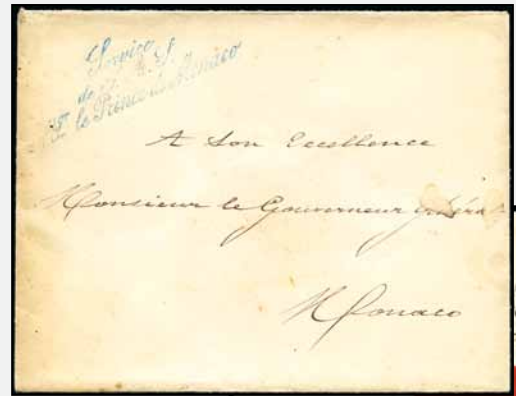 Service
de S. A. S.
Mgr le Prince de Monaco
A Son Excellence
Monsieur le Gouverneur général
Monaco